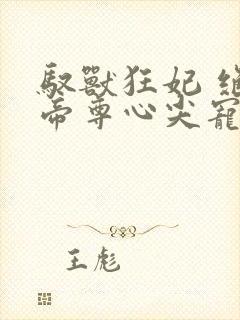 馭獸狂妃
帝尊心尖寵
王彪